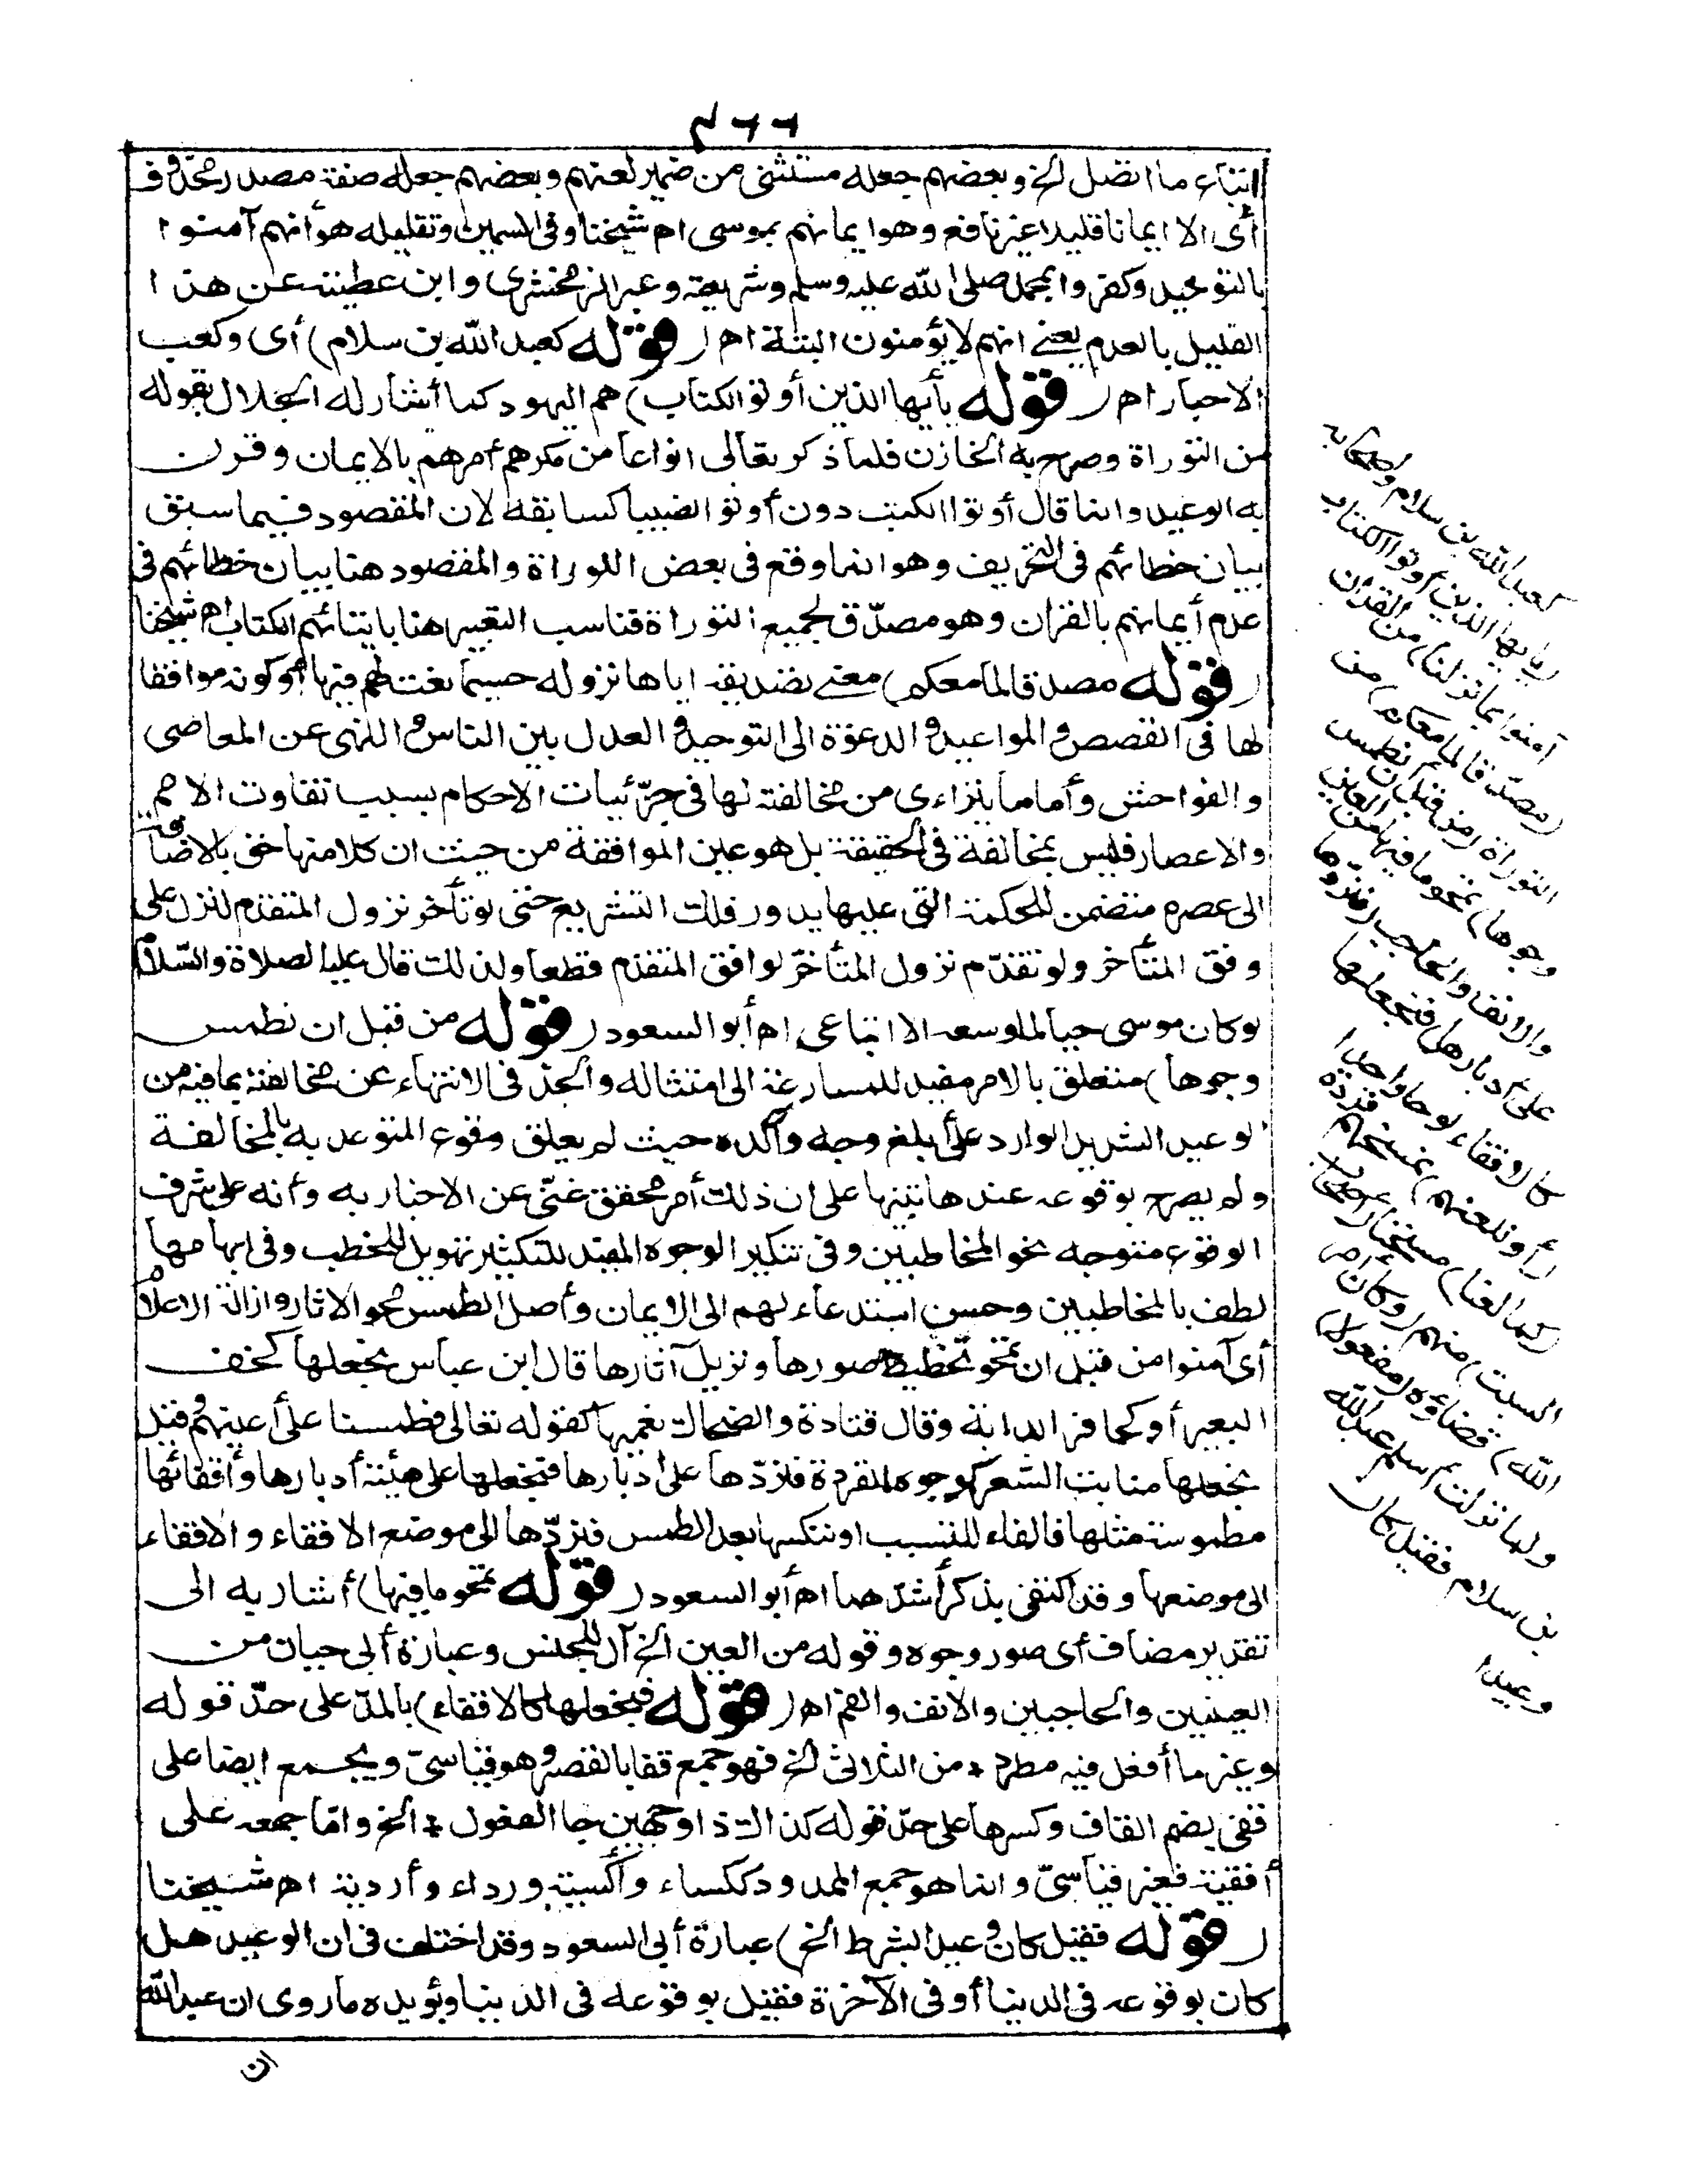 ٤٦٦
اتباع ما اتصل الخ وبعضهم جعله مستثنى من ضمير لعنهم وبعضهم جعله صفة مصدر محذوف
أى الا ايمانا قليلا غير نافع وهو ايمانهم بموسى اه شيخنا وفى السمين وتقليله هو أنهم آمنوا
بالتوحيد وكفروا بمحمد صلى الله عليه وسلم وشريعته وعبر الزمخشرى وابن عطية عن هذا
القليل بالعدم يعنى انهم لا يؤمنون البتة اه (قوله كعبد الله بن سلام) أى وكعب
الاحبار اه (قوله يأيها الذين أوتوا الكتاب) هم اليهود كما أشار له الجلال بقوله
من التوراة وصرح به الخازن فلما ذكر تعالى انواعا من مكرهم أمرهم بالايمان وقرن
به الوعيد وانما قال أوتوا الكتب دون أوتوا نصيبا كسابقه لان المقصود فيما سبق
بيان خطائهم فى التحريف وهو انما وقع فى بعض التوراة والمقصود هنا بيان خطائهم فى
عدم أيمانهم بالقران وهو مصدّق لجميع التوراة فناسب التعبير هنا بايتائهم الكتاب اه شيخنا
(قوله مصدقا لما معكم) معنى تصديقه اياها نزوله حسبما نعت لهم فيها أو كونه موافقا
لها فى القصص والمواعيد والدعوة الى التوحيد والعدل بين الناس والنهى عن المعاصى
والفواحش وأما ما يتراءى من مخالفته لها فى جزئيات الاحكام بسبب تفاوت الامم
والاعصار فليس بمخالفة فى الحقيقة بل هو عين الموافقة من حيث ان كلا منها حق بالاضافة
الى عصره متضمن للحكمة التى عليها يدور فلك التشريع حتى لو تأخر نزول المتقدم لنزل على
وفق المتأخر ولو تقدّم نزول المتأخر لوافق المتقدم قطعا ولذلك قال عليه الصلاة والسّلام
لو كان موسى حيا لما وسعه الا اتباعى اه أبو السعود (قوله من قبل ان نطمس
وجوها) متعلق بالامر مفيد للمسارعة الى امتثاله والجد فى الانتهاء عن مخالفته بما فيه من
الوعيد الشديد الوارد على أبلغ وجه وآكده حيث لم يعلق وقوع المتوعد به بالمخالفة
ولم يصرح بوقوعه عندها تنبيها على ان ذلك أمر محقق غنىّ عن الاخبار به وأنه على شرف
الوقوع متوجه نحو المخاطبين وفى تنكير الوجوه المفيد للتكثير تهويل للخطب وفى ابهامها
لطف بالمخاطبين وحسن استدعاء لهم الى الايمان وأصل الطمس محو الاثار وازالة الاعلام
أى آمنوا من قبل ان نمحو تخطيط صورها ونزيل آثارها قال ابن عباس نجعلها كخف
البعير أو كحافر الدابة وقال قتادة والضحاك نعميها كقوله تعالى فطمسنا على أعينهم وقيل
نجعلها منابت الشعر كوجوه القردة فنردّها على أدبارها فنجعلها على هيئة أدبارها وأقفائها
مطموسة مثلها فالفاء للتسبب او ننكسها بعد الطمس فنردّها الى موضع الاقفاء والاقفاء
الى موضعها وقد اكتفى بذكر أشدّهما اه أبو السعود (قوله نمحو ما فيها) أشار به الى
تقدير مضاف أى صور وجوه وقوله من العين الخ أل للجنس وعبارة أبى حيان من
العينين والحاجبين والانف والفم اه (قوله فنجعلها كالاقفاء) بالمدّ على حدّ قوله
وغير ما أفعل فيه مطرد * من الثلاثى الخ فهو جمع قفا بالقصر وهو قياسىّ ويجمع ايضا على
قفى بضم القاف وكسرها على حدّ قوله كذاك ذا وجهين جا الفعول * الخ وامّا جمعه على
أقفية فغير قياسىّ وانما هو جمع الممدود ككساء وأكسية ورداء وأردية اه شيخنا
(قوله فقيل كان وعيدا بشرط الخ) عبارة أبى السعود وقد اختلف فى ان الوعيد هل
كان بوقوعه فى الدنيا أو فى الآخرة فقيل بوقوعه فى الدنيا ويؤيده ما روى ان عبد الله
ان
كعبد الله بن سلام وأصحابه
(يأيها الذين أوتوا الكتاب
آمنوا بما نزلنا) من القرآن
(مصدّقا لما معكم) من
التوراة (من قبل أن نطمس
وجوها) نمحو ما فيها من العين
والانف والحاجب (فنردّها
على أدبارها) فنجعلها
كالاقفاء لوحا واحدا
(أو نلعنهم) نمسخهم قردة
(كما لعنا) مسخنا (أصحاب
السبت) منهم (وكان أمر
الله) قضاؤه (مفعولا)
ولما نزلت أسلم عبد الله
بن سلام فقيل كان
وعيدا